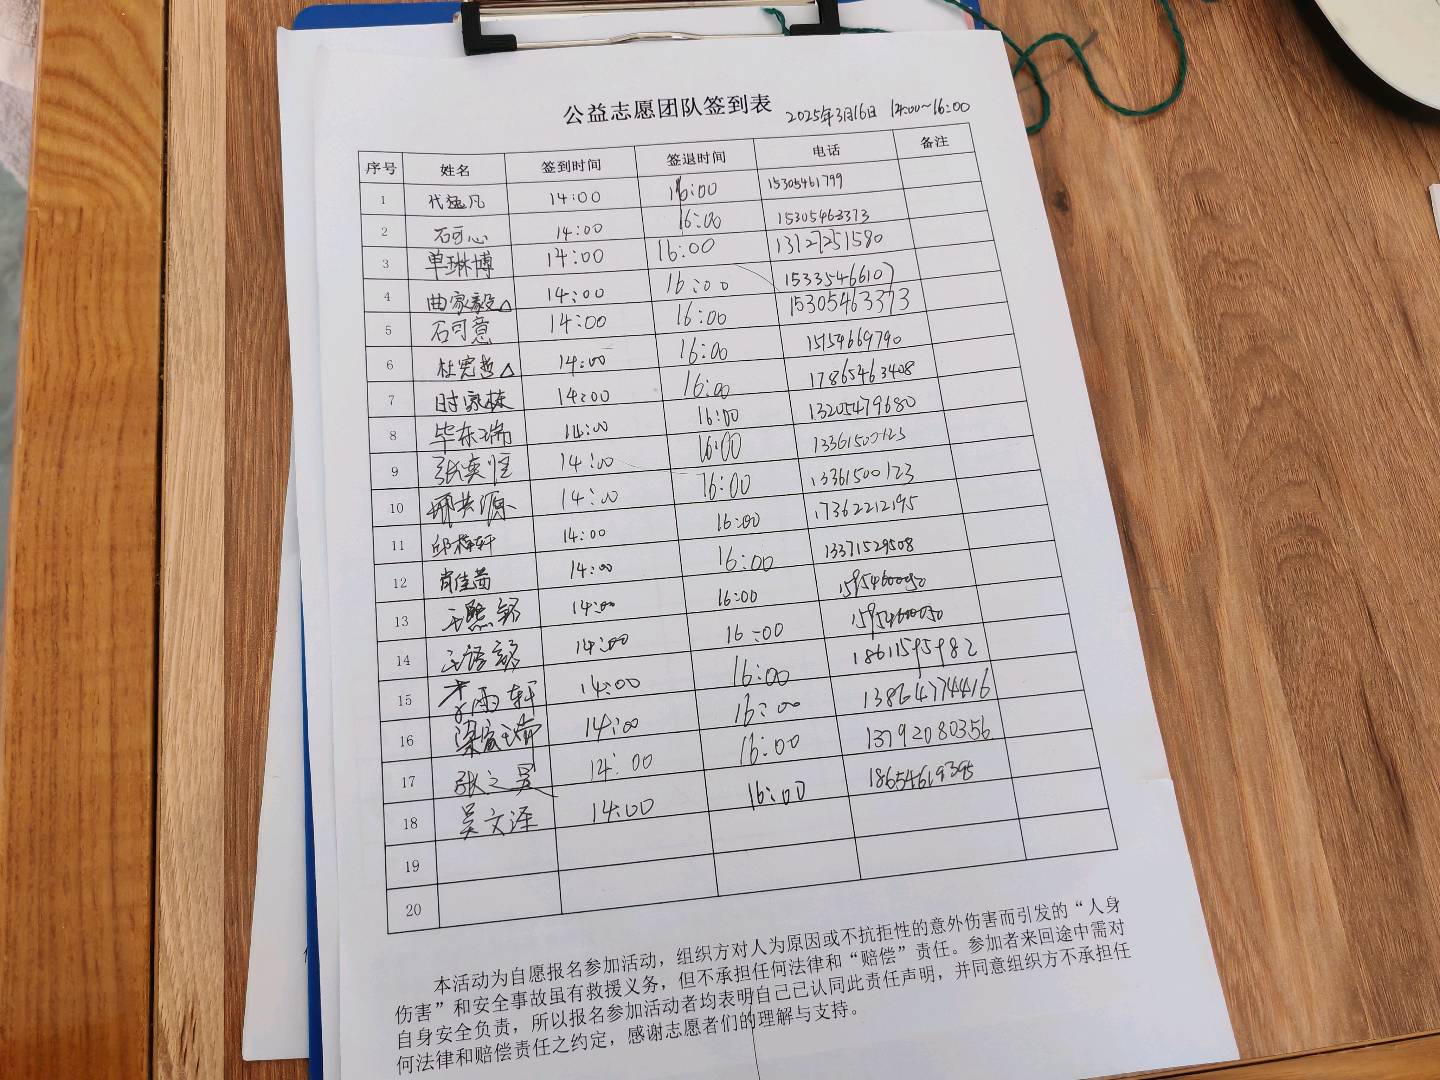 公益志愿团队签到表 2025年3月16日 14:00~16:00
序号 姓名 签到时间 签退时间 电话 备注
1 代逸凡 14:00 16:00 15305461799
2 石可心 14:00 16:00 15305463373
3 单琳博 14:00 16:00 13127251580
4 曲家毅△ 14:00 16:00 15335466107
5 石可意 14:00 16:00 15305463373
6 杜宪哲△ 14:00 16:00 15154669790
7 时家栋 14:00 16:00 17865463408
8 毕东瑞 14:00 16:00 13205479680
9 张奕恒 14:00 16:00 13361500123
10 邢其源 14:00 16:00 13361500123
11 邱梓轩 14:00 16:00 17362212195
12 肖佳茜 14:00 16:00 13371529508
13 王熙 14:00 16:00 15954600050
14 王语 14:00 16:00 15954600050
15 李雨轩 14:00 16:00 18611595982
16 梁宸瑞 14:00 16:00 13864774416
17 张之昊 14:00 16:00 13792080356
18 吴文泽 14:00 16:00 18654619395
19
20
本活动为自愿报名参加活动，组织方对人为原因或不抗拒性的意外伤害而引发的“人身
伤害”和安全事故虽有救援义务，但不承担任何法律和“赔偿”责任。参加者来回途中需对
自身安全负责，所以报名参加活动者均表明自己已认同此责任声明，并同意组织方不承担任
何法律和赔偿责任之约定，感谢志愿者们的理解与支持。